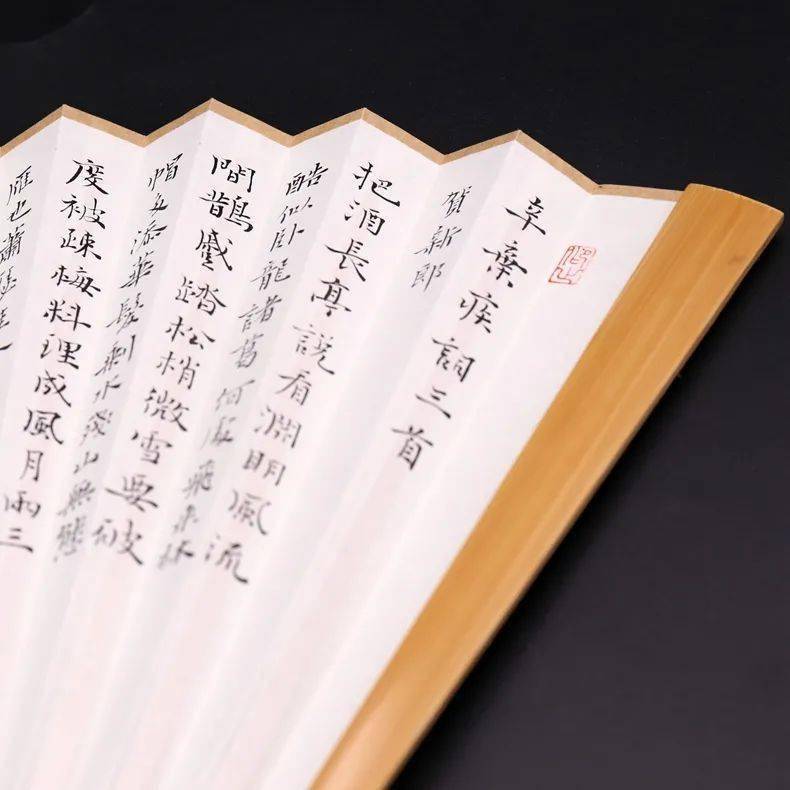 辛棄疾詞三首
賀新郎
把酒長亭説看淵明風流
酷似臥龍諸葛何處飛來林
間鵲蹙踏松梢微雪要破
帽多添華髮剩水殘山無態
度被疎梅料理成風月兩三
雁也蕭瑟